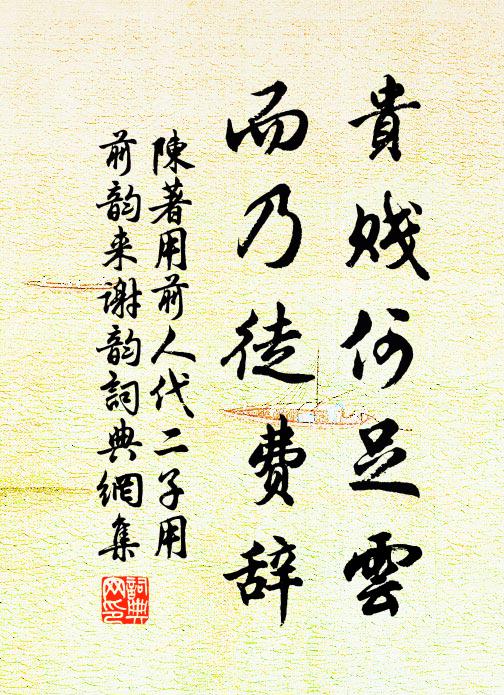 貴賤何足雲
而乃徒費辞
陳著用前人代二子用
前韵来謝韵詞典網集
詞典網印